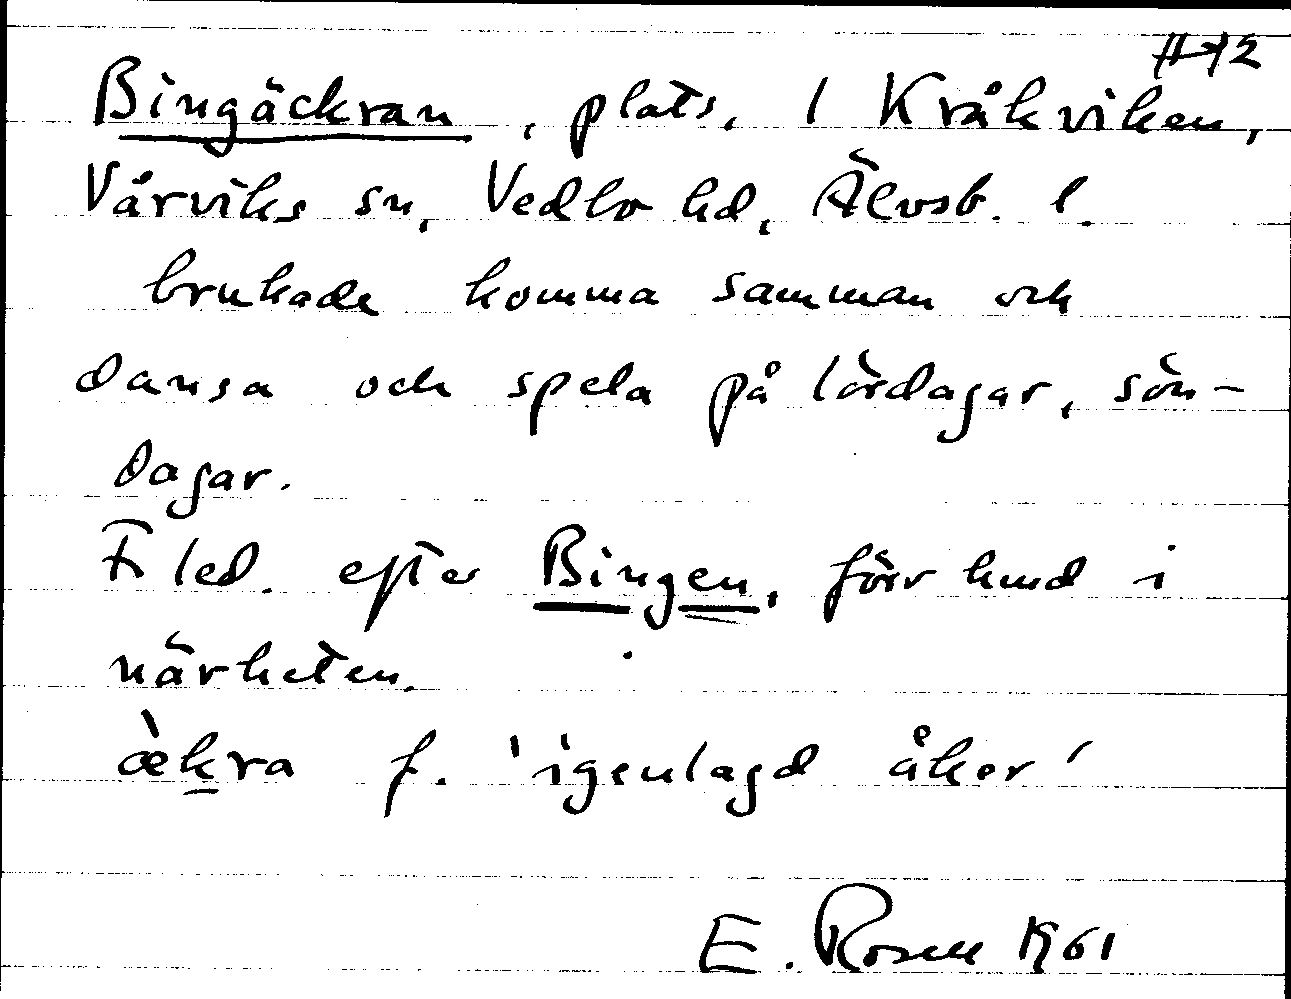 Bingäckran, plats, 1 Kråkviken,
Vårviks sn, Vedbo hd, Älvsb. l.
brukade komma samman och
dansa och spela på lördagar, sön-
dagar.
F led. efter Bingen, förr hmd i
närheten.
æ̀kra f. 'igenlagd åker'
E. Rosell 1961